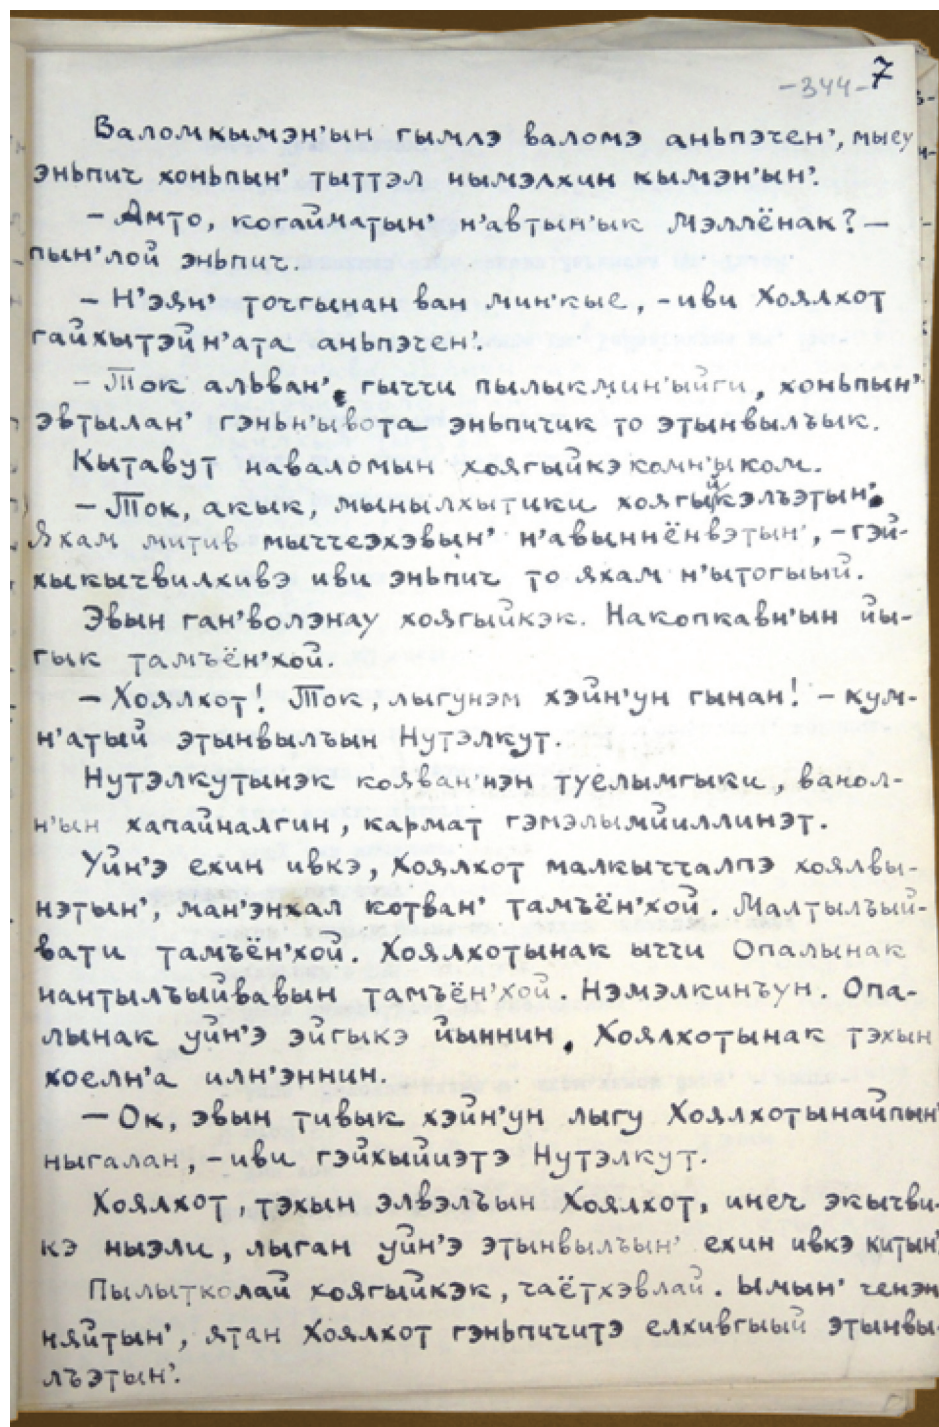 -344- 7
Валомкымэн'ын гымлэ валомэ аньпэчен', мысу
эньпич хоньпын' тыттэл нымэлхин кымэн'ын'.
– Амто, когайматын' н'автын'ык Мэллёнак? –
пын'лой эньпич.
– Н'эян' точгынан ван мин'кые, – иви Хоялхот
гайхытэйн'ата аньпэчен'.
– Ток альван', гыччи пылыкмин'ыйги, хоньпын'
эвтылан' гэньн'ывота эньпичик то этынвылъык.
Кытавут наваломын хоягыйкэ комн'ыком.
– Ток, акык, мынылхытики хоягыйкэлъэтын'.
Яхам митив мыччеэхэвын' н'авыннёнвэтын', – гэй-
хыкычвилхивэ иви эньпич то яхам н'ытогыый.
Эвын ган'волэнау хоягыйкэк. Накопкавн'ын йы-
гык тамъён'хой.
– Хоялхот! Ток, лыгунэм хэйн'ун гынан! – кум-
н'атый этынвылъын Нутэлкут.
Нутэлкутынэк кояван'нэн туелымгыки, ванол-
н'ын хапайналгин, кармат гэмэлымйиллинэт.
Уйн'э ехин ивкэ, Хоялхот малкыччалпэ хоялвы-
нэтын', ман'энхал котван' тамъён'хой. Малтылъый-
вати тамъён'хой. Хоялхотынак ыччи Опалынак
нантылъыйвавын тамъён'хой. Нэмэлкинъун. Опа-
лынак уйн'э эйгыкэ йыннин. Хоялхотынак тэхын
хоелн'а илн'эннин.
– Ок, эвын тивык хэйн'ун лыгу Хоялхотынайпын'
ныгалан, – иви гэйхыйиэтэ Нутэлкут.
Хоялхот, тэхын элвэлъын Хоялхот, инеч экычви-
кэ ныэли, лыган уйн'э этынвылъын' ехин ивкэ китын'
Пылытколай хоягыйкэк, чаётхэвлай. Ымын' ченэн
няйтын', ятан Хоялхот гэньпичитэ елхивгыый этынвы-
лъэтын'.